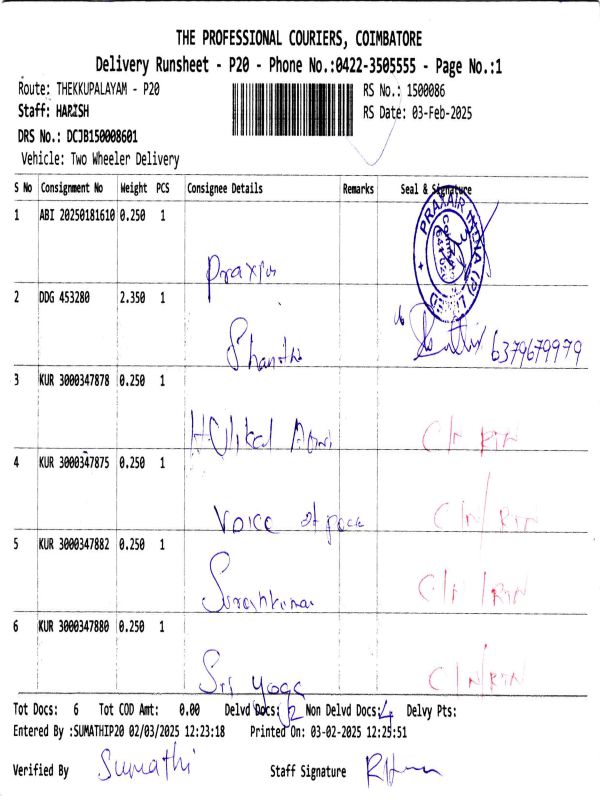 THE PROFESSIONAL COURIERS, COIMBATORE
Delivery Runsheet - P20 - Phone No.:0422-3505555 - Page No.:1
Route: THEKKUPALAYAM - P20 RS No.: 1500086
Staff: HARISH RS Date: 03-Feb-2025
DRS No.: DCJB150008601
Vehicle: Two Wheeler Delivery
S No Consignment No Weight PCS Consignee Details Remarks Seal & Signature
1 ABI 20250181610 0.250 1
PRAXAIR INDIA (P)
Praxair
2 DDG 453280 2.350 1
Shanthi 6379679979
3 KUR 3000347878 0.250 1
C/N RTN
4 KUR 3000347875 0.250 1
Voice of C/N/RTN
5 KUR 3000347882 0.250 1
Sureshkumar C/N/RTN
6 KUR 3000347880 0.250 1
Sri Yoga C/N/RTN
Tot Docs: 6 Tot COD Amt: 0.00 Delvd Docs: 2 Non Delvd Docs: 4 Delvy Pts:
Entered By :SUMATHIP20 02/03/2025 12:23:18 Printed On: 03-02-2025 12:25:51
Verified By Sumathi Staff Signature